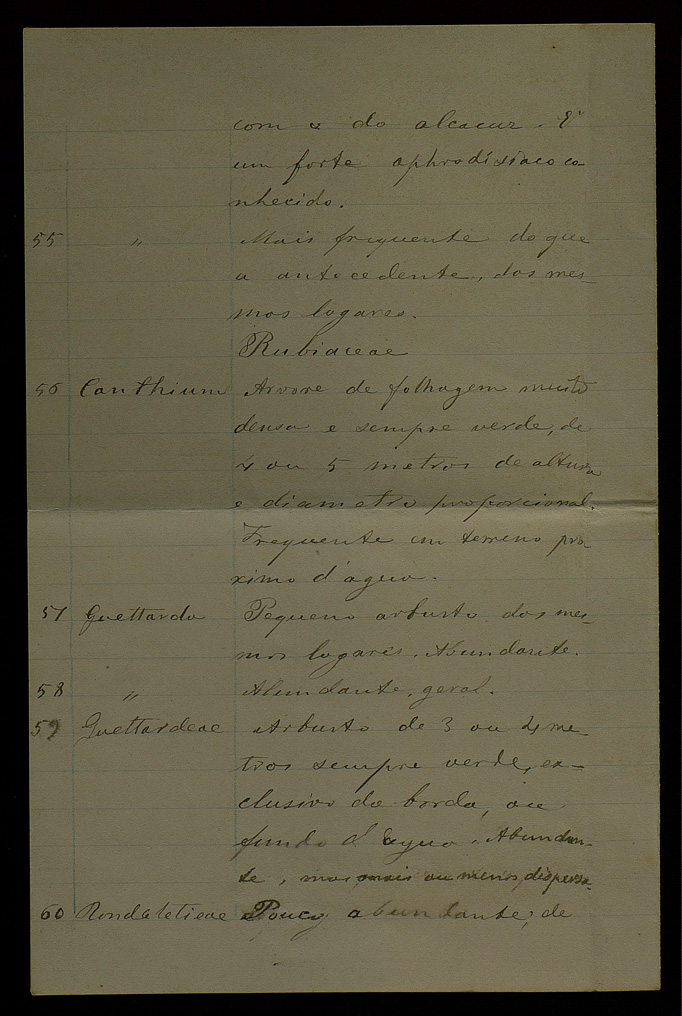 com o do alcacuz. É
um forte aphrodísiaco co-
nhecido.
55 " Mais frequente do que
a antecedente, dos mes-
mos logares.
Rubiaceae
56 Canthium Arvore de folhagem muito
densa e sempre verde, de
4 ou 5 metros de altura
e diametro proporcional.
Frequente em terreno pro-
ximo d'agua.
57 Guettarda Pequeno arbusto dos mes-
mos logares. Abundante.
58 " Abundante, geral.
59 Guettardeae Arbusto de 3 ou 4 me-
tros sempre verde, ex-
clusivo da borda, ou
fundo d'agua. Abundan-
te, mas mais ou menos disperso.
60 Rondeletieae Pouco abundante, de